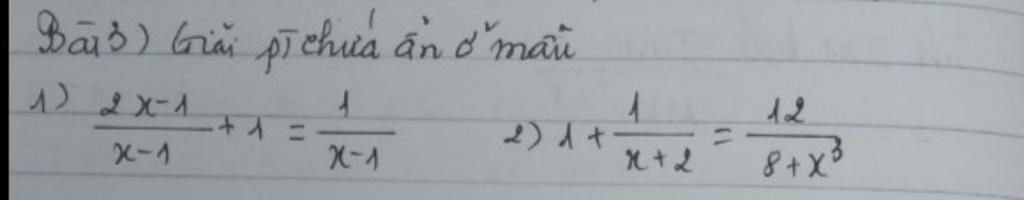 Bài 3) Giải pt chứa ẩn ở mẫu
1) \frac{2x-1}{x-1} + 1 = \frac{1}{x-1} 2) 1 + \frac{1}{x+2} = \frac{12}{8+x^3}